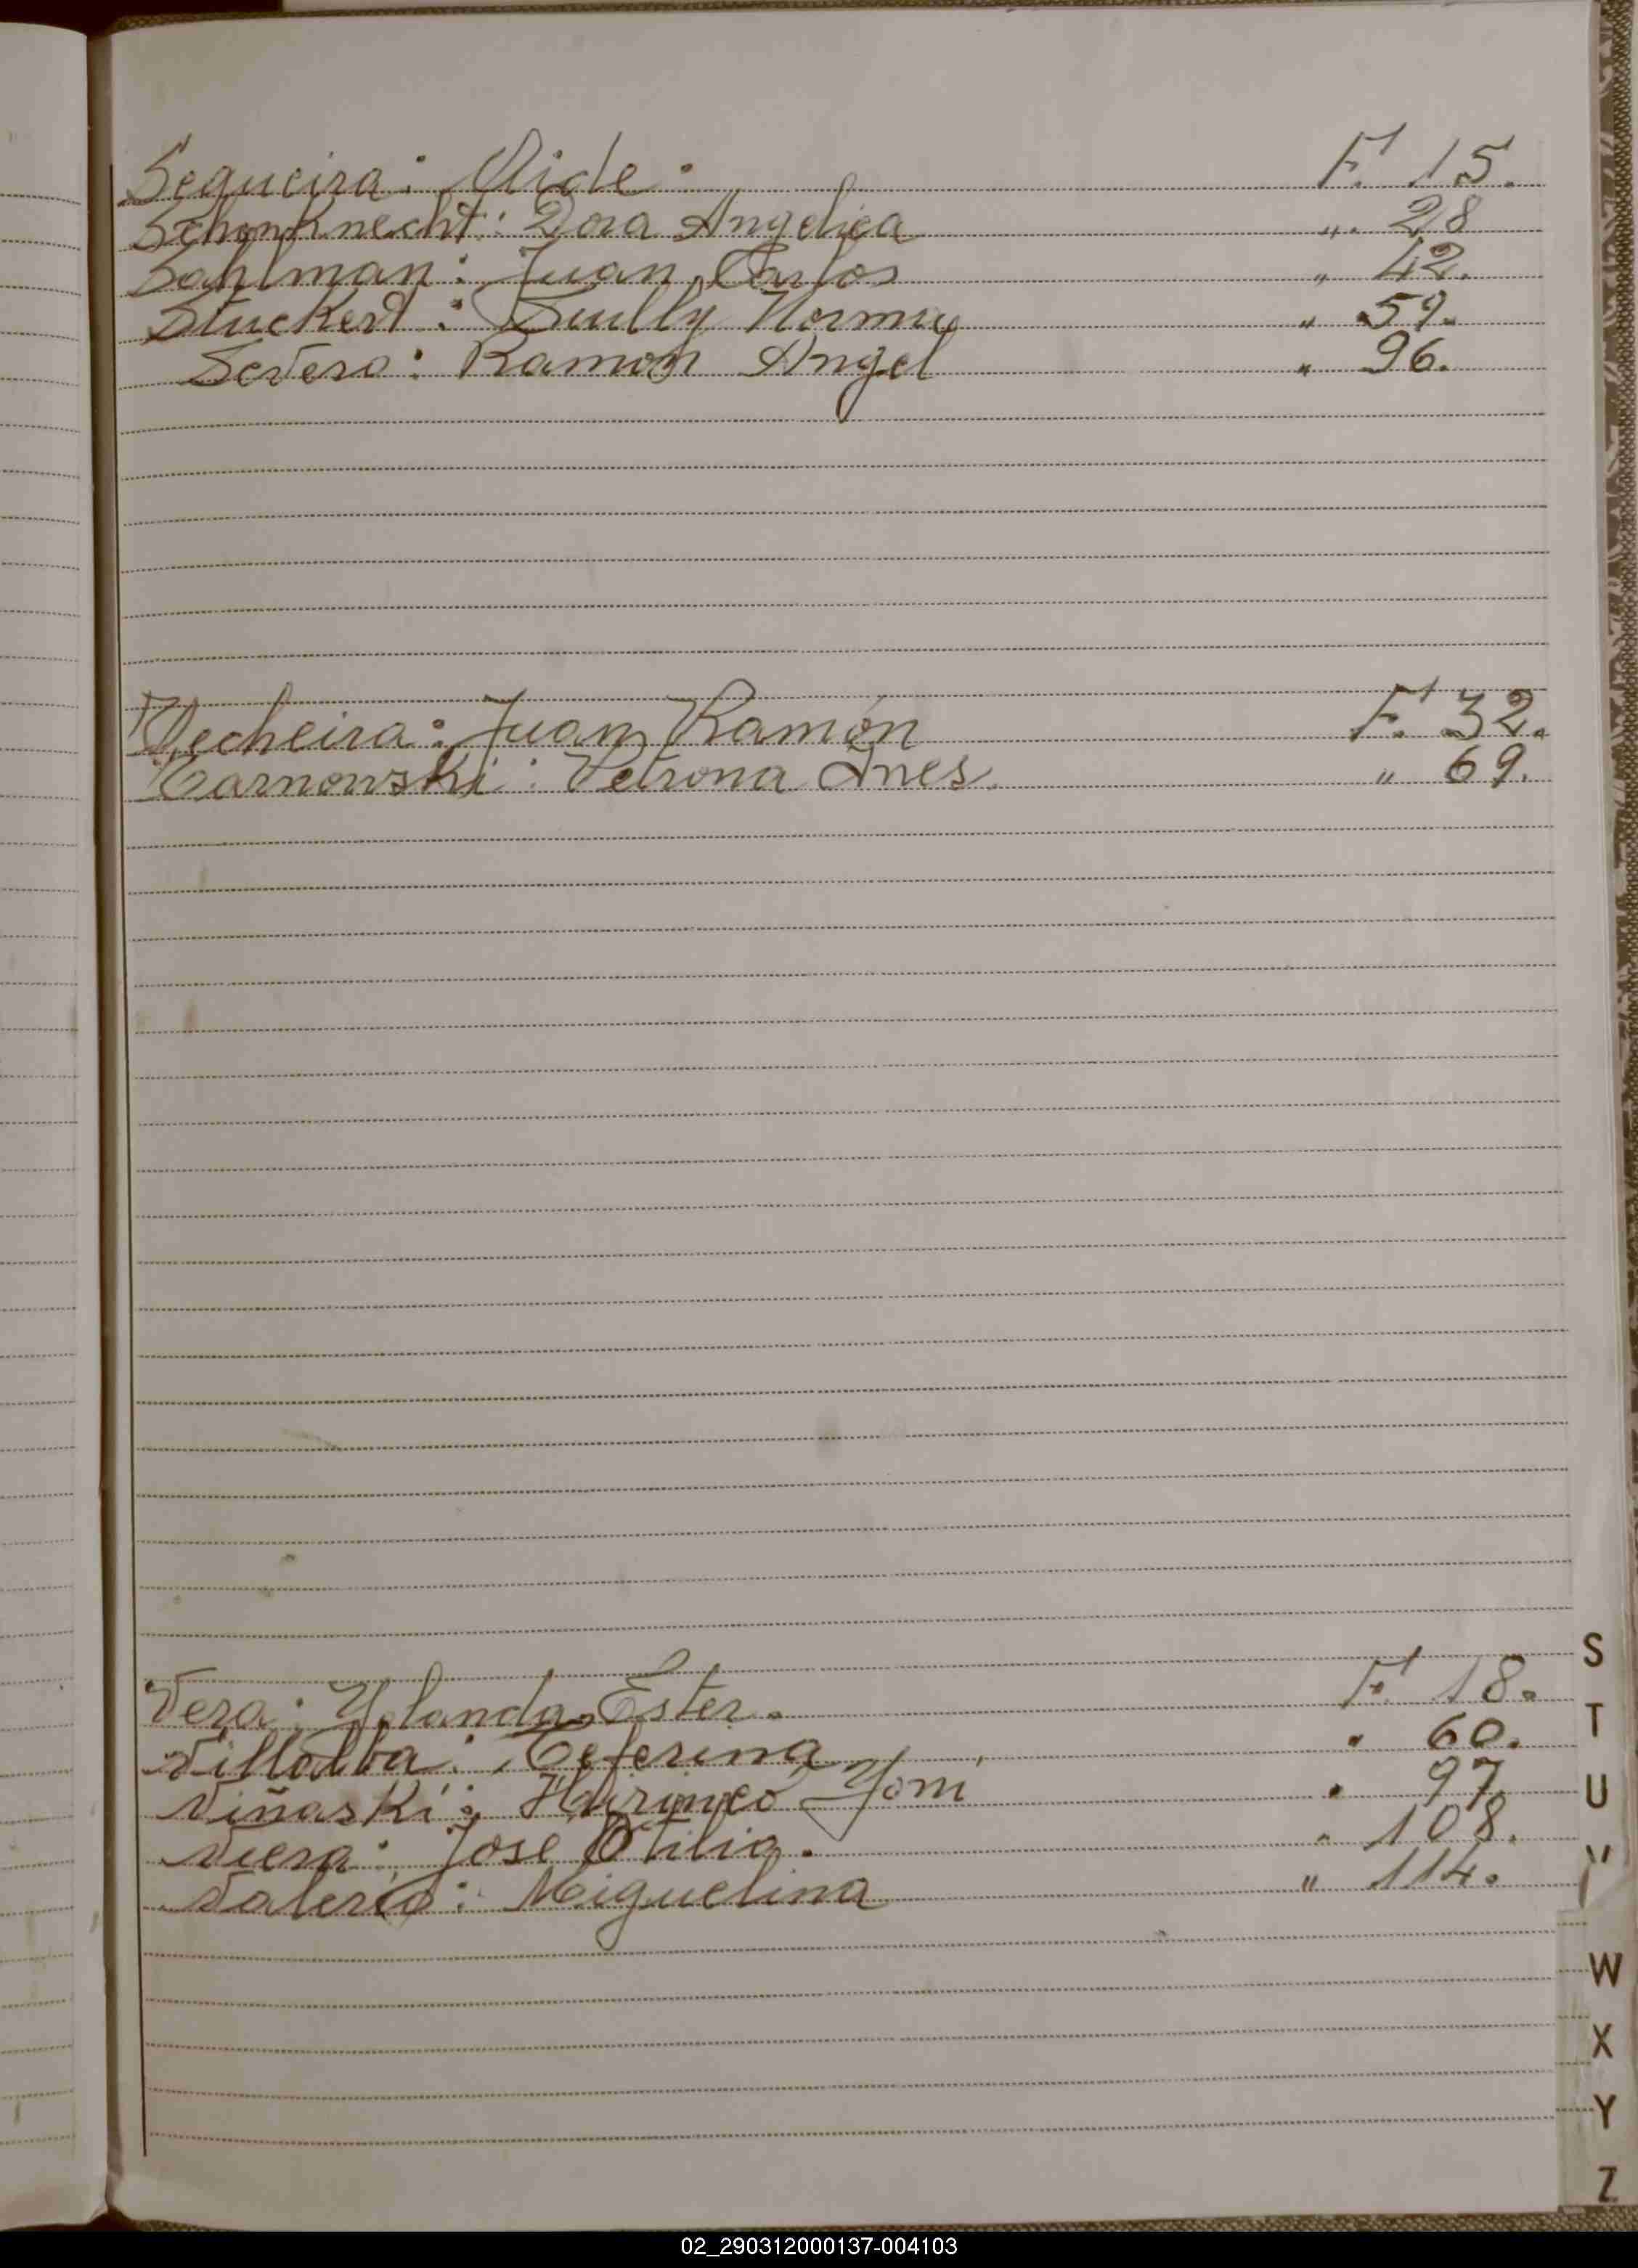 Sequeira: Aide. F. 15.
Schonknecht: Dora Angelica „. 28
Sahlman: Juan Carlos „ 42.
Stuckert: Norma „ 59.
Severo: Ramon Angel „ 96.
Techeira: Juan Ramón F. 32.
Tarnowski: Petrona Ines. „ 69.
Vera: Yolanda Ester. F. 18.
Villalba: Ceferina " 60.
Viñaski: " 97
Viera: Jose Otilio. " 108.
Valerio: Miguelina " 114.
S
T
U
V
W
X
Y
Z
02_290312000137-004103